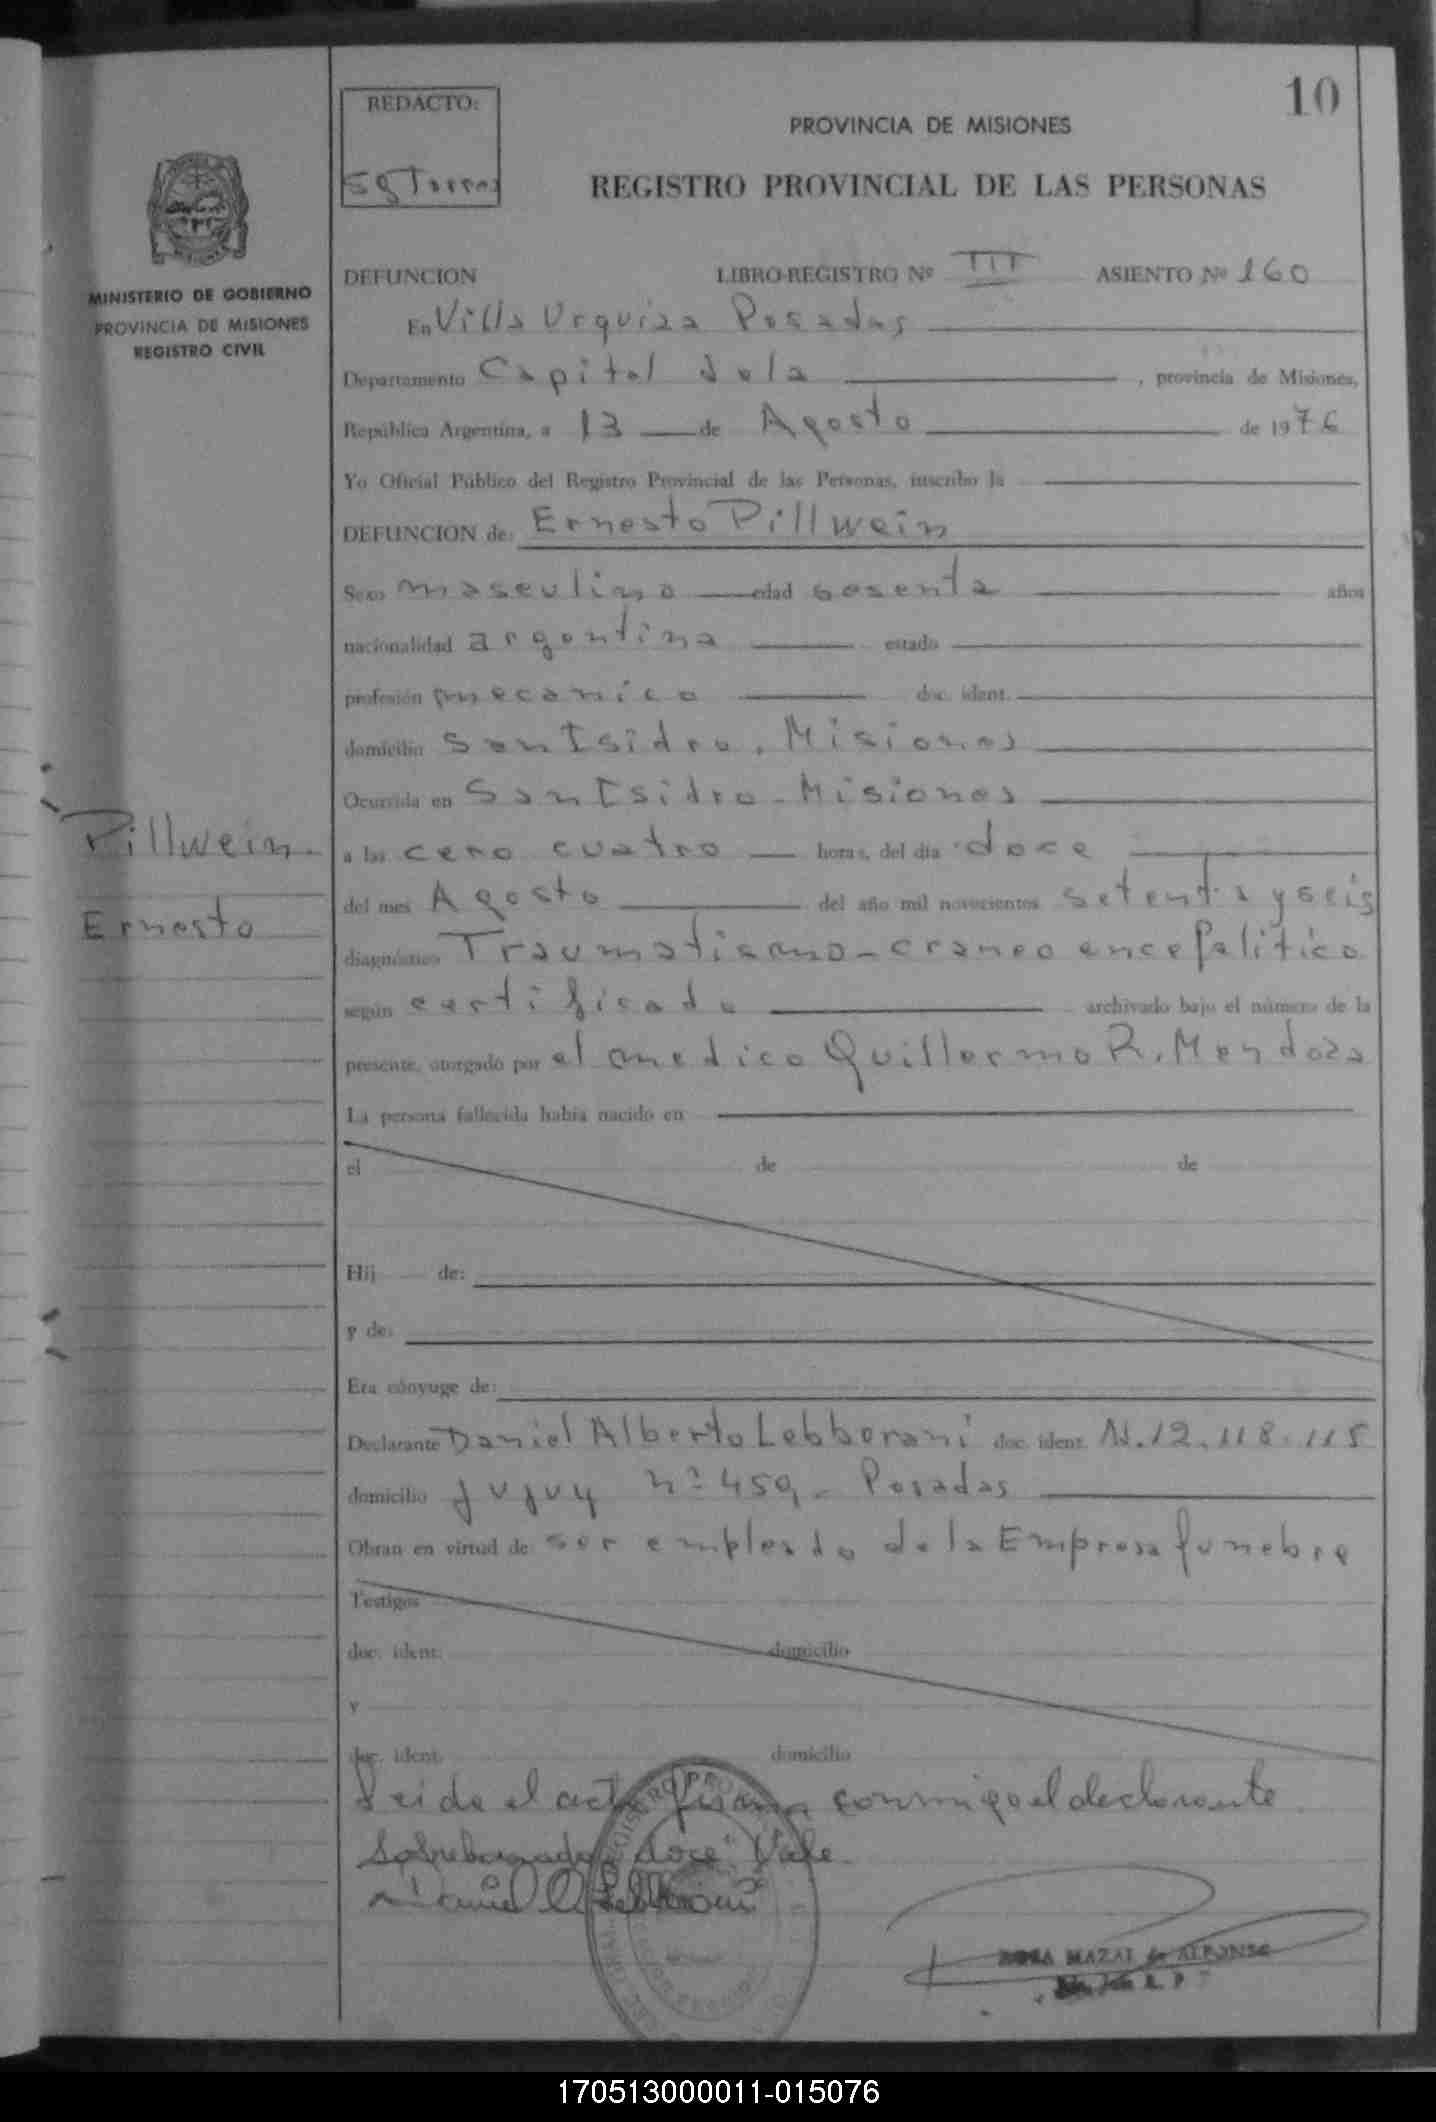 10
REDACTO:
PROVINCIA DE MISIONES
REGISTRO PROVINCIAL DE LAS PERSONAS
MINISTERIO DE GOBIERNO
PROVINCIA DE MISIONES
REGISTRO CIVIL
DEFUNCION LIBRO-REGISTRO Nº III ASIENTO Nº 160
En Villa Urquiza Posadas
Departamento Capital dela , provincia de Misiones,
República Argentina, a 13 de Agosto de 1976
Yo Oficial Público del Registro Provincial de las Personas, inscribo la
DEFUNCION de: Ernesto Pillwein
Sexo masculino edad sesenta años
nacionalidad argentina estado
profesión mecanico doc. ident.
domicilio San Isidro, Misiones
Ocurrida en San Isidro - Misiones
Pillwein
Ernesto
a las cero cuatro horas, del día doce
del mes Agosto del año mil novecientos setenta y seis
diagnóstico Traumatismo - craneo encefalitico
según certificado archivado bajo el número de la
presente, otorgado por el medico Guillermo R. Mendoza
La persona fallecida había nacido en
el de de
Hij de:
y de:
Era cónyuge de:
Declarante Daniel Alberto Lebborani doc. ident. N. 12.118.115
domicilio Jujuy nº 459 - Posadas
Obran en virtud de ser empleado de la Empresa funebre
Testigos
doc. ident. domicilio
y
doc. ident. domicilio
Leida el acta firma conmigo el declarante
Sobreborrado "doce" Vale.
ROSA MAZAL de ALFONSO
170513000011-015076